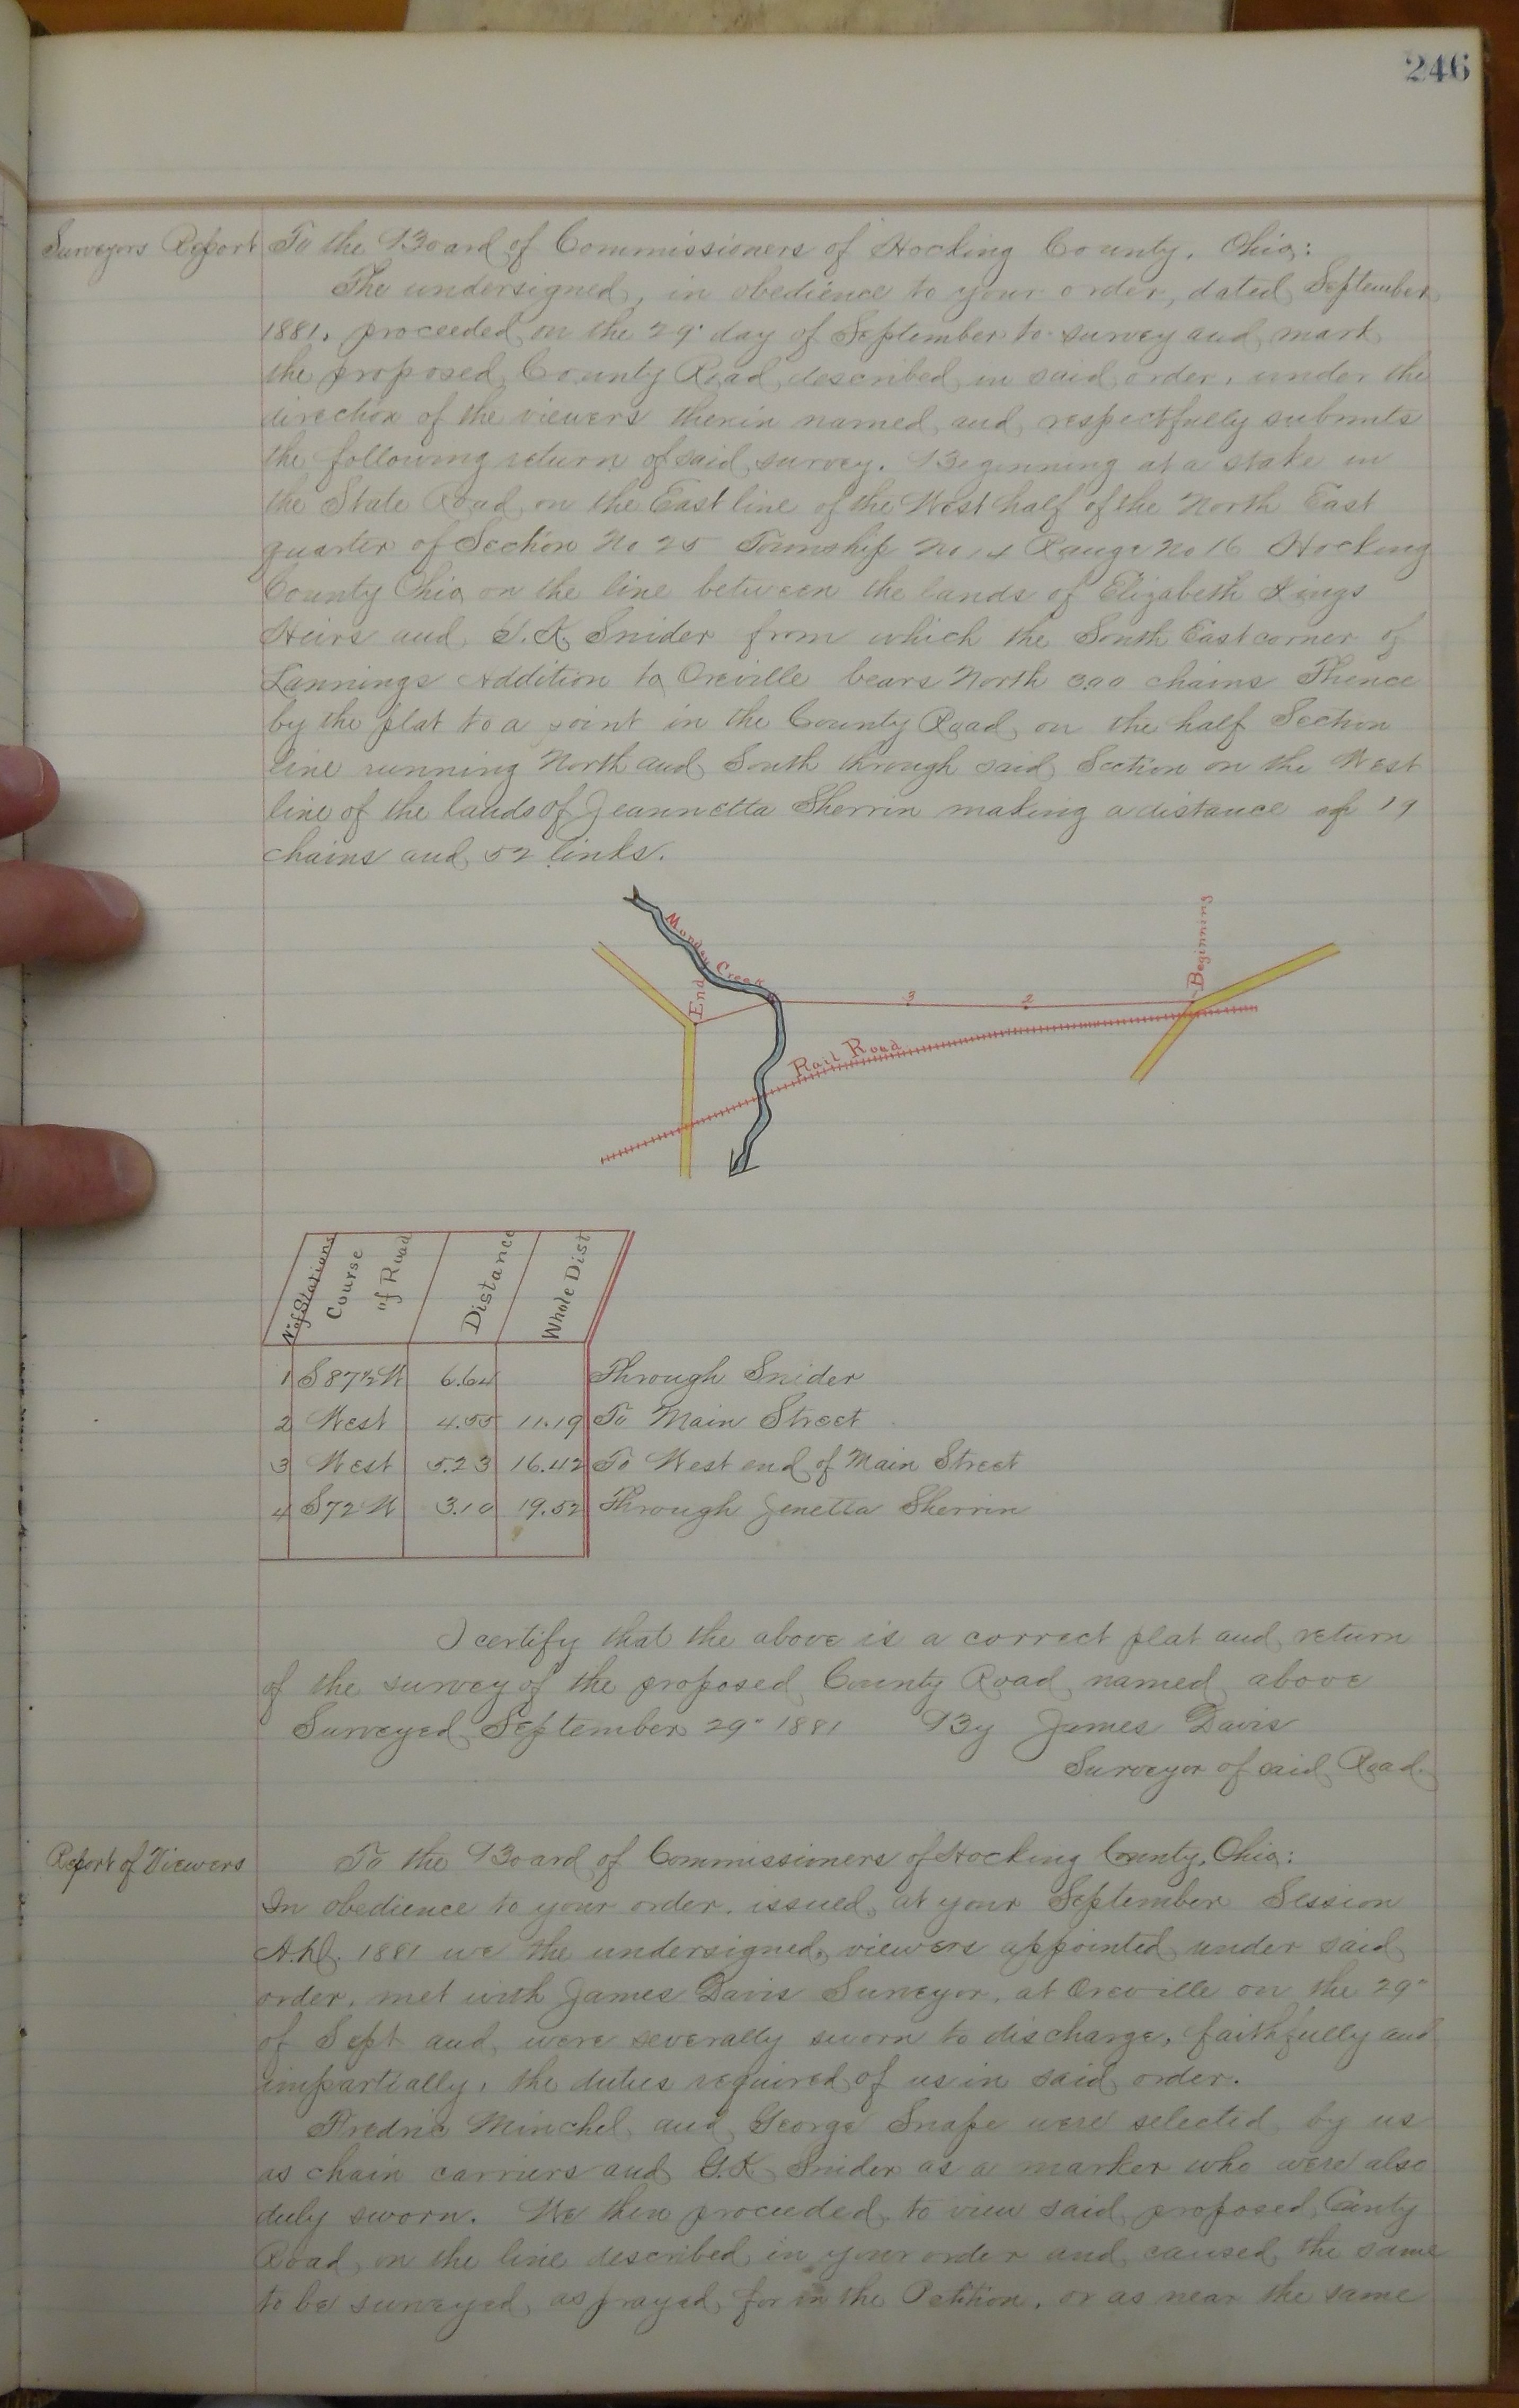 246
Surveyors Report
To the Board of Commissioners of Hocking County, Ohio:
The undersigned, in obedience to your order, dated September
1881, proceeded on the 29" day of September to survey and mark
the proposed County Road described in said order, under the
direction of the viewers therein named and respectfully submits
the following return of said survey. Beginning at a stake in
the State Road on the East line of the West half of the North East
quarter of Section No 25 Township No 14 Range No 16 Hocking
County Ohio on the line between the lands of Elizabeth Kings
Heirs and K. Snider from which the South East corner of
Lannings Addition to Oreville bears North chains Thence
by the plat to a point in the County Road on the half Section
line running North and South through said Section on the West
line of the lands of Jeannetta Sherrin making a distance of 19
chains and 52 links.
Monday Creek
End
3
2
Beginning
Rail Road
No of Stations
Course of Road
Distance
Whole Dist
1 S87½W 6.64 Through Snider
2 West 4.55 11.19 To Main Street
3 West 5.23 16.42 To West end of Main Street
4 S72°W 3.10 19.52 Through Jenetta Sherrin
I certify that the above is a correct plat and return
of the survey of the proposed County Road named above
Surveyed September 29" 1881 By James Davis
Surveyor of said Road.
Report of Viewers
To the Board of Commissioners of Hocking County, Ohio:
In obedience to your order, issued at your September Session
A.D. 1881 we the undersigned, viewers appointed under said
order, met with James Davis Surveyor, at Oreville on the 29"
of Sept and were severally sworn to discharge, faithfully and
impartially, the duties required of us in said order.
Fredric Minchel and George Snape were selected by us
as chain carriers and G.K. Snider as a marker who were also
duly sworn. We then proceeded to view said proposed County
Road on the line described in your order and caused the same
to be surveyed as prayed for in the Petition, or as near the same